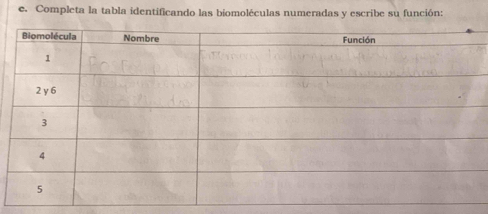 c. Completa la tabla identificando las biomoléculas numeradas y escribe su función:
Biomolécula Nombre Función
1
2 y 6
3
4
5